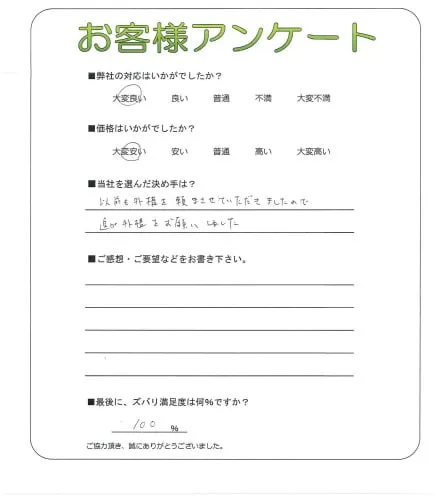 お客様アンケート
■弊社の対応はいかがでしたか？
大変良い 良い 普通 不満 大変不満
■価格はいかがでしたか？
大変安い 安い 普通 高い 大変高い
■当社を選んだ決め手は？
以前も外構を頼まさせていただきましたので
追加外構をお願いしました
■ご感想・ご要望などをお書き下さい。
■最後に、ズバリ満足度は何％ですか？
100 %
ご協力頂き、誠にありがとうございました。